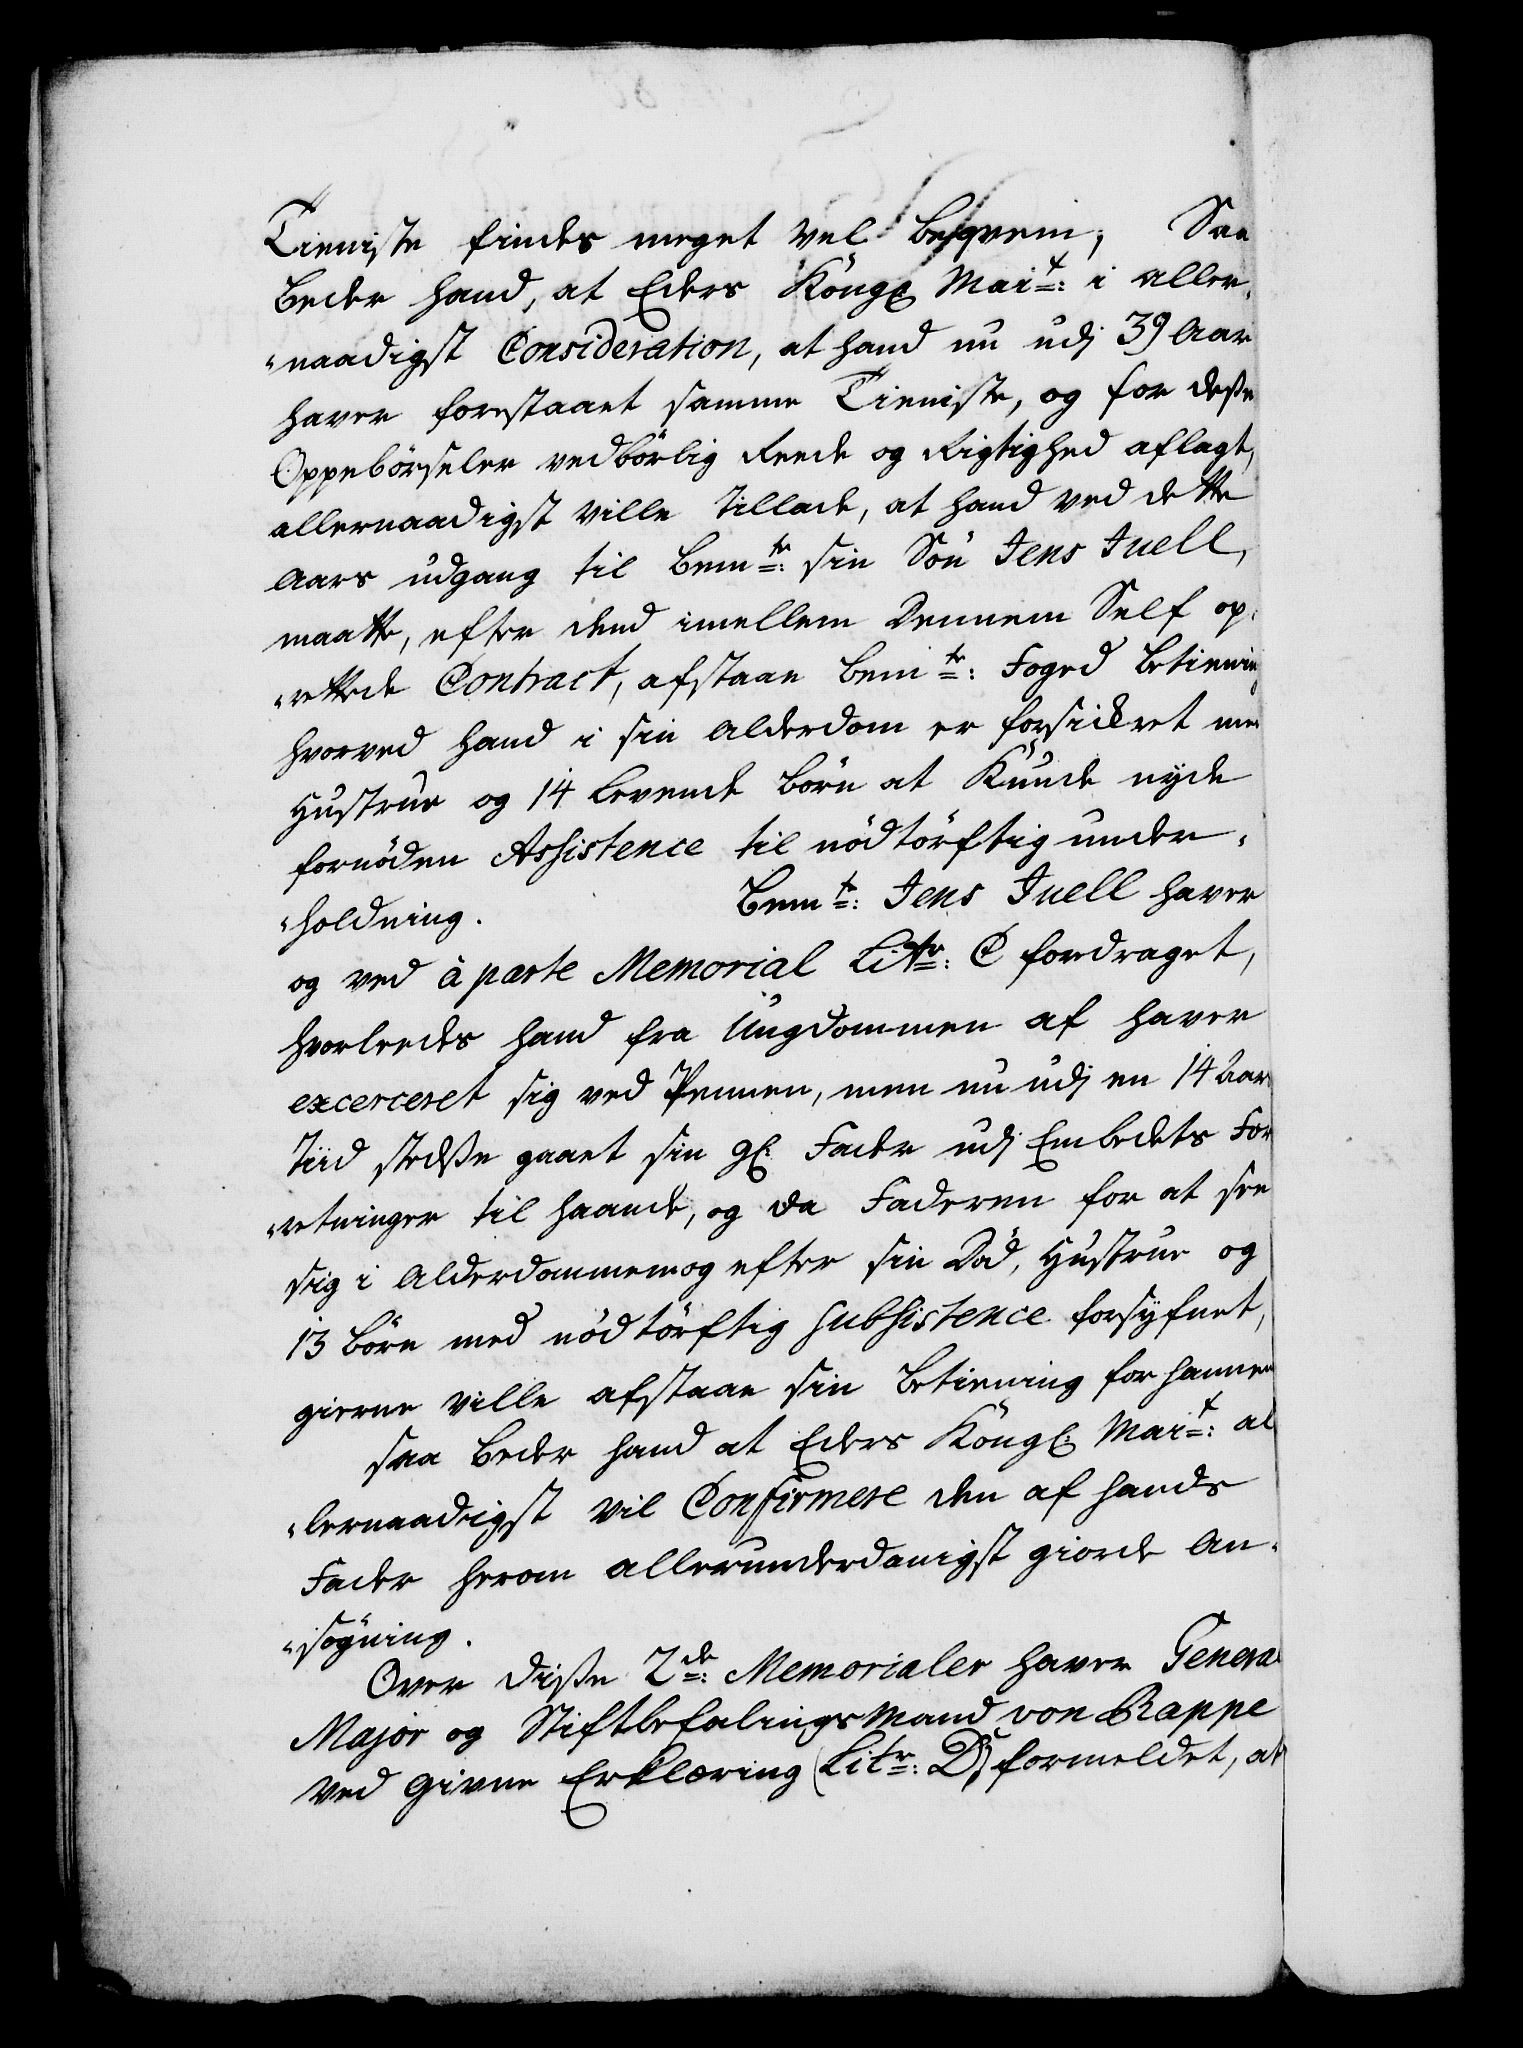 Tieniste findes meget vel beqvem; Saa
beder hand, at Eders Köngl Mai:t i aller-
naadigst Consideration, at hand nu udj 39 Aar
haver forestaaet samme Tieniste, og for desse
Oppebörseler vedbörlig Reede og Rigtighed aflagt,
allernaadigst ville tillade, at hand ved dette
Aars udgang til bem:te sin Sön Jens Juell,
maatte, efter dend imellem Dennem Self op-
rettede Contract, afstaae bem:te Foged betiening
hvorved hand i sin Alderdom er forsickret med
Hustrue og 14 levende börn at kunde nyde
fornöden Assistence til nödtörftig under-
holdning. Bem:te Jens Juell haver
og ved à parte Memorial Litr: C fordraget,
hvorleedes hand fra Ungdommen af haver
excerceret sig ved Pennen, men nu udj en 14 Aars
Tiid stedsse gaaet sin gl: Fader udj Embedets For
retninger til haande, og da Faderen for at see
sig i Alderdommen og efter sin Död, Hustrue og
13 börn med nödtörftig Subsistence forsyfnet,
gierne ville afstaae sin betiening for hannem
saa beder hand at Eders Köngl: Mai:t al
lernaadigst vil Confirmere den af hands
Fader herom allerunderdanigst giorde An-
sögning.
Over disse 2:de Memorialer haver General
Major og Stiftbefalings Mand von Rappe
ved givne Erklæring (Litr: D) formeldet, at